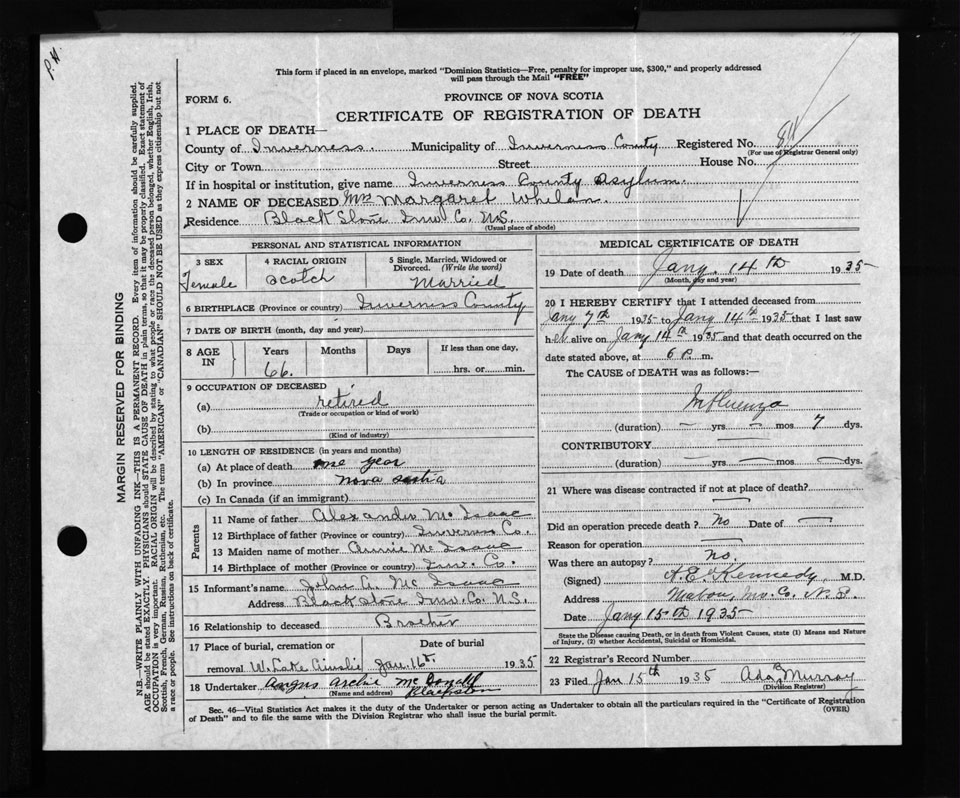 P.H.
This form if placed in an envelope, marked "Dominion Statistics—Free, penalty for improper use, $300," and properly addressed
will pass through the Mail "FREE"
FORM 6.
PROVINCE OF NOVA SCOTIA
CERTIFICATE OF REGISTRATION OF DEATH
1 PLACE OF DEATH—
County of Inverness. Municipality of Inverness County Registered No.
(For use of Registrar General only)
City or Town Street House No.
If in hospital or institution, give name Inverness County Asylum.
2 NAME OF DECEASED Mrs Margaret Whelan.
Residence Black Stone Inv Co. N.S.
(Usual place of abode)
PERSONAL AND STATISTICAL INFORMATION
3 SEX 4 RACIAL ORIGIN 5 Single, Married, Widowed or
Divorced. (Write the word)
Female Scotch Married
6 BIRTHPLACE (Province or country) Inverness County
7 DATE OF BIRTH (month, day and year)
8 AGE IN Years Months Days If less than one day,
66. hrs. or min.
9 OCCUPATION OF DECEASED
(a) retired
(Trade or occupation or kind of work)
(b)
(Kind of industry)
10 LENGTH OF RESIDENCE (in years and months)
(a) At place of death one year
(b) In province Nova Scotia
(c) In Canada (if an immigrant)
Parents
11 Name of father Alexander McIsaac
12 Birthplace of father (Province or country) Inverness Co.
13 Maiden name of mother Annie McIsaac
14 Birthplace of mother (Province or country) Inv. Co.
15 Informant's name John A. McIsaac
Address Black Stone Inv. Co. N.S.
16 Relationship to deceased Brother
17 Place of burial, cremation or Date of burial
removal W. Lake Ainslie Jan. 16th 1935
18 Undertaker Angus Archie McDonald
(Name and address) Blackstone
MEDICAL CERTIFICATE OF DEATH
19 Date of death Jany. 14th 1935
(Month, day and year)
20 I HEREBY CERTIFY that I attended deceased from
Jany 7th 1935 to Jany 14th 1935 that I last saw
her alive on Jany 14th 1935 and that death occurred on the
date stated above, at 6 P. m.
The CAUSE of DEATH was as follows:—
Influenza
(duration) — yrs — mos 7 dys.
CONTRIBUTORY
(duration) — yrs. — mos. — dys.
21 Where was disease contracted if not at place of death?
Did an operation precede death? No Date of —
Reason for operation
Was there an autopsy? No.
(Signed) A. E. Kennedy, M.D.
Address Mabou, Inv. Co. N.S.
Date Jany 15th 1935
State the Disease causing Death, or in death from Violent Causes, state (1) Means and Nature
of Injury, (2) whether Accidental, Suicidal or Homicidal.
22 Registrar's Record Number
23 Filed Jan 15th 1935 Ada B Murray
(Division Registrar)
Sec. 46—Vital Statistics Act makes it the duty of the Undertaker or person acting as Undertaker to obtain all the particulars required in the "Certificate of Registration
of Death" and to file the same with the Division Registrar who shall issue the burial permit. (OVER)
MARGIN RESERVED FOR BINDING
N.B.—WRITE PLAINLY WITH UNFADING INK—THIS IS A PERMANENT RECORD. Every item of information should be carefully supplied.
AGE should be stated EXACTLY. PHYSICIANS should STATE CAUSE OF DEATH in plain terms, so that it may be properly classified. Exact statement of
OCCUPATION is very important. RACIAL ORIGIN will be described by stating to what people or race the deceased person belonged, whether English, Irish,
Scottish, French, German, Russian, Ruthenian, etc. The terms "AMERICAN" or "CANADIAN" SHOULD NOT BE USED as they express citizenship but not
a race or people. See instructions on back of certificate.